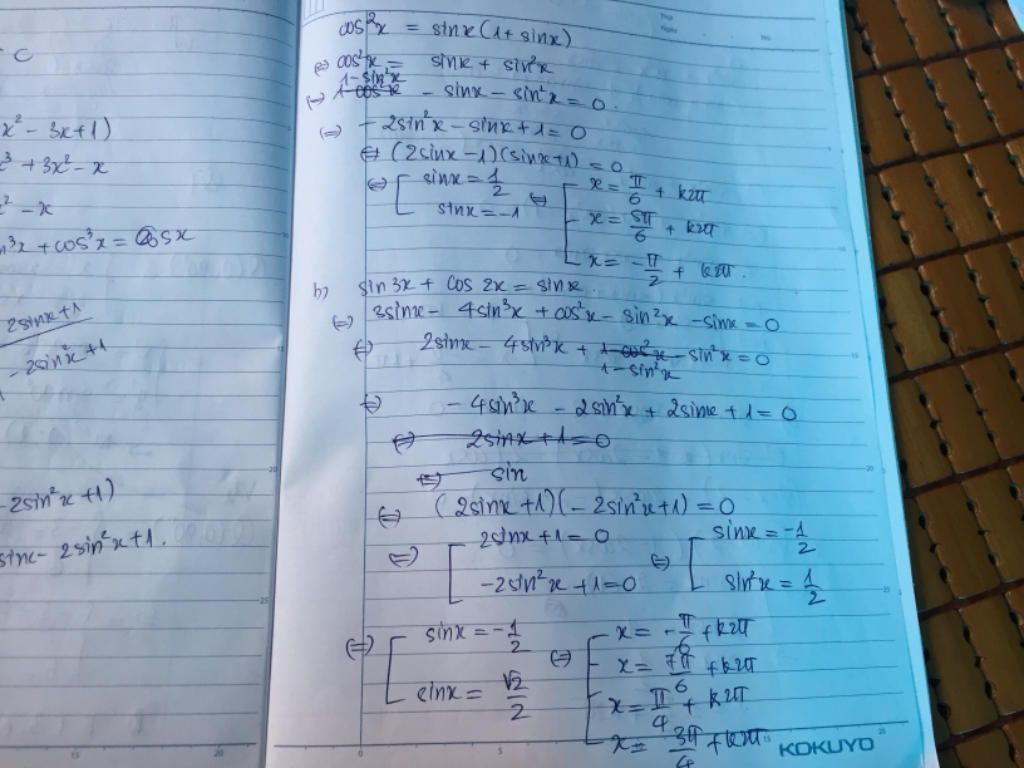 C
x² - 3x + 1)
+ 3x² - x
² - x
³x + cos³x = cosx
2sinx + 1
- 2sin²x + 1
- 2sin²x + 1)
sinx - 2sin²x + 1.
cos²x = sinx (1 + sinx)
⇔ cos²x = sinx + sin²x
1 - sin²x
⇔ 1 - cos²x - sinx - sin²x = 0.
⇔ - 2sin²x - sinx + 1 = 0
⇔ (2sinx - 1)(sinx + 1) = 0
⇔ [ sinx = 1/2 ⇔ [ x = π/6 + k2π
sinx = -1 x = 5π/6 + k2π
x = -π/2 + k2π.
b) sin 3x + cos 2x = sinx.
⇔ 3sinx - 4sin³x + cos²x - sin²x - sinx = 0
⇔ 2sinx - 4sin³x + 1 - cos²x - sin²x = 0
1 - sin²x
⇔ - 4sin³x - 2sin²x + 2sinx + 1 = 0
⇔ 2sinx + 1 = 0
⇔ sin
⇔ (2sinx + 1)(- 2sin²x + 1) = 0
⇔ [ 2sinx + 1 = 0 ⇔ [ sinx = -1/2
-2sin²x + 1 = 0 sin²x = 1/2
⇔ [ sinx = -1/2 ⇔ [ x = -π/6 + k2π
x = 7π/6 + k2π
sinx = √2/2 x = π/4 + k2π
x = 3π/4 + k2π
KOKUYO